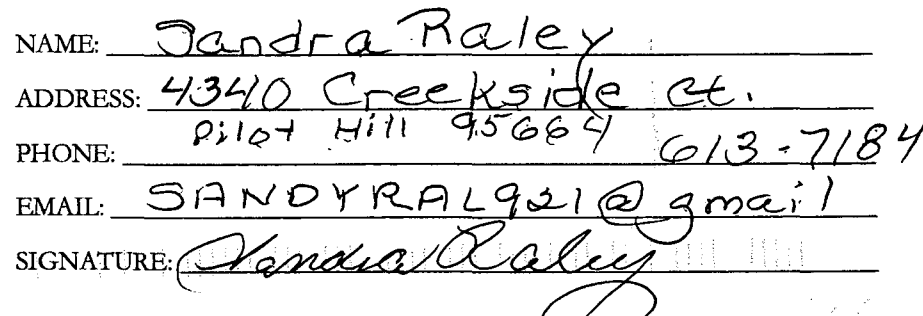 NAME: Sandra Raley
ADDRESS: 4340 Creekside Ct.
Pilot Hill 95664
PHONE: 613-7184
EMAIL: SANDYRAL921@gmail
SIGNATURE: Sandra Raley